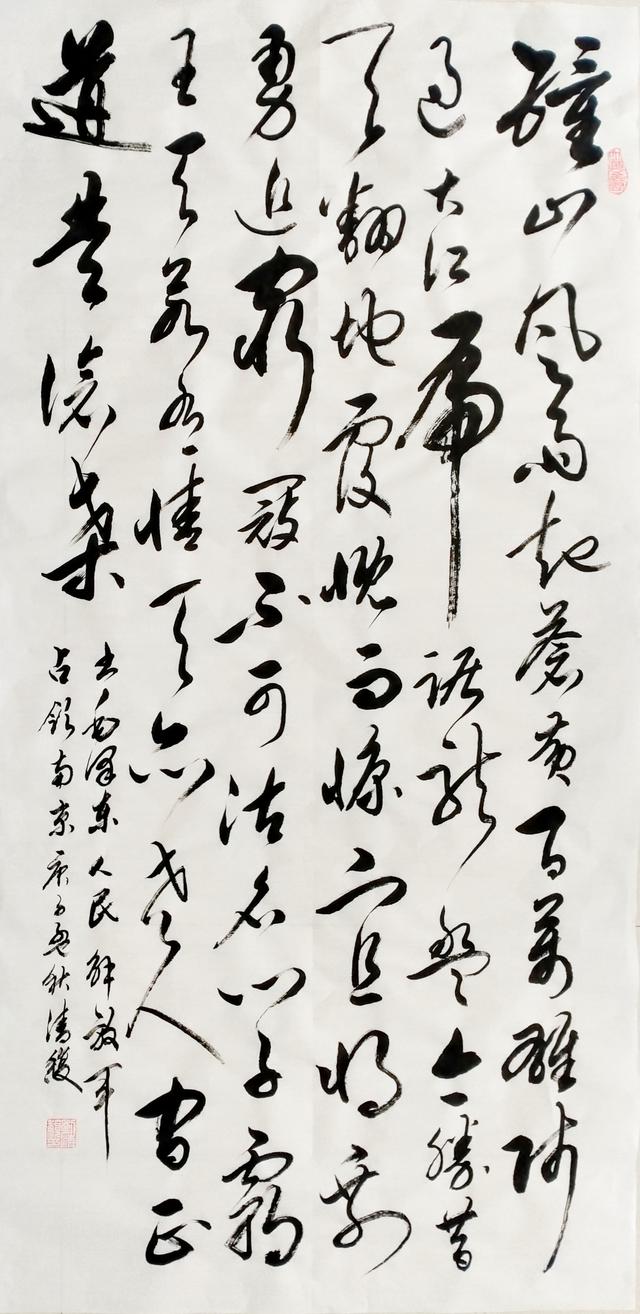 鍾山風雨起蒼黄百萬雄師
过大江虎踞龍盘今勝昔
天翻地覆慨而慷宜将剩
勇追窮寇不可沽名学霸
王天若有情天亦老人间正
道是滄桑
书毛澤东人民解放军
占领南京庚子孟秋清